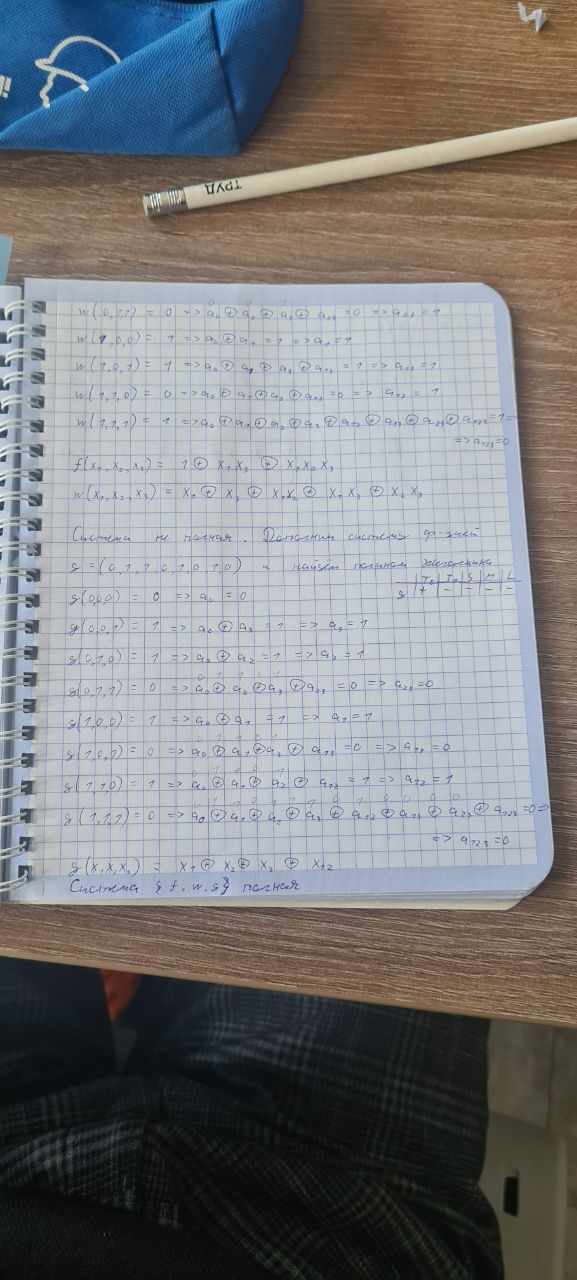 ТРУД
w(0,1,1) = 0 => a₀ ⊕ a₂ ⊕ a₃ ⊕ a₂₃ = 0 => a₂₃ = 1
w(1,0,0) = 1 => a₀ ⊕ a₁ = 1 => a₁ = 1
w(1,0,1) = 1 => a₀ ⊕ a₁ ⊕ a₃ ⊕ a₁₃ = 1 => a₁₃ = 1
w(1,1,0) = 0 => a₀ ⊕ a₁ ⊕ a₂ ⊕ a₁₂ = 0 => a₁₂ = 1
w(1,1,1) = 1 => a₀ ⊕ a₁ ⊕ a₂ ⊕ a₃ ⊕ a₁₂ ⊕ a₁₃ ⊕ a₂₃ ⊕ a₁₂₃ = 1 =>
=> a₁₂₃ = 0
f(x₁, x₂, x₃) = 1 ⊕ x₁x₃ ⊕ x₁x₂x₃
w(x₁, x₂, x₃) = x₁ ⊕ x₃ ⊕ x₁x₂ ⊕ x₁x₃ ⊕ x₂x₃
Система не полная. Дополним систему ф-цией
g = (0,1,1,0,1,0,1,0) и найдём полином Жегалкина
T₀ T₁ S M L
g + - - - -
g(0,0,0) = 0 => a₀ = 0
g(0,0,1) = 1 => a₀ ⊕ a₃ = 1 => a₃ = 1
g(0,1,0) = 1 => a₀ ⊕ a₂ = 1 => a₂ = 1
g(0,1,1) = 0 => a₀ ⊕ a₂ ⊕ a₃ ⊕ a₂₃ = 0 => a₂₃ = 0
g(1,0,0) = 1 => a₀ ⊕ a₁ = 1 => a₁ = 1
g(1,0,1) = 0 => a₀ ⊕ a₁ ⊕ a₃ ⊕ a₁₃ = 0 => a₁₃ = 0
g(1,1,0) = 1 => a₀ ⊕ a₁ ⊕ a₂ ⊕ a₁₂ = 1 => a₁₂ = 1
g(1,1,1) = 0 => a₀ ⊕ a₁ ⊕ a₂ ⊕ a₃ ⊕ a₁₂ ⊕ a₁₃ ⊕ a₂₃ ⊕ a₁₂₃ = 0 =>
=> a₁₂₃ = 0
g(x₁x₂x₃) = x₁ ⊕ x₂ ⊕ x₂ ⊕ x₁₂
Система {f, w, g} полная